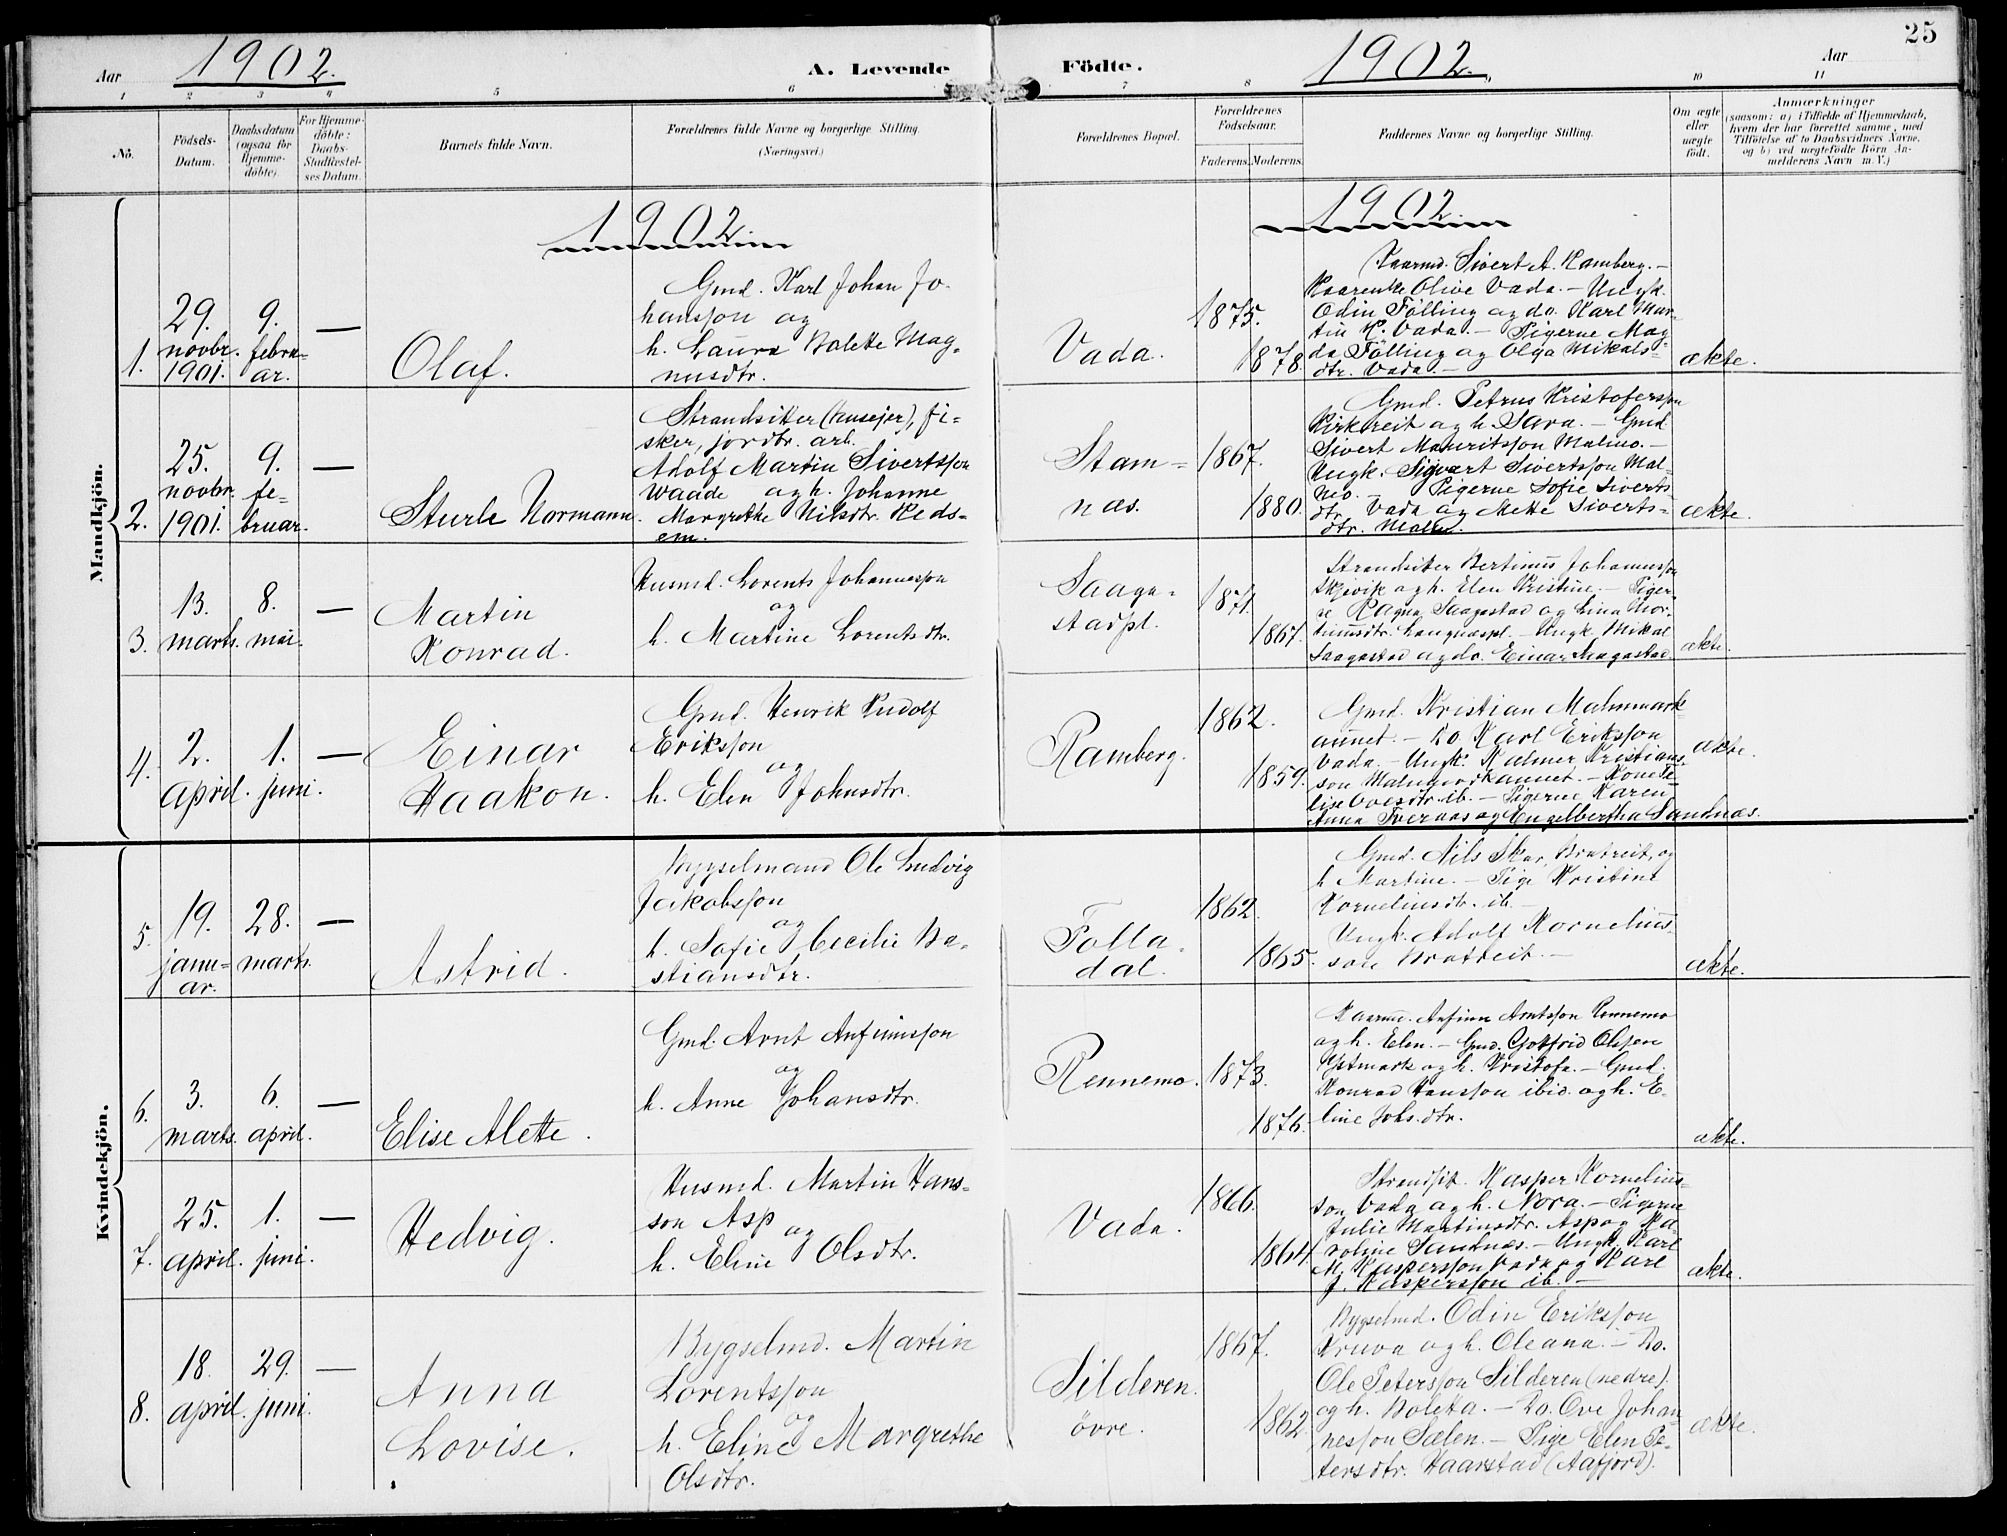 25
Aar 1902. A. Levende Födte. 1902. Aar
1 2 3 4 5 6 7 8 9 10 11
No.
Födsels-
Datum.
Daabsdatum
(ogsaa for
Hjemme-
döbte).
For Hjemme-
döbte:
Daabs-
Stadfæstel-
ses Datum.
Barnets fulde Navn.
Forældrenes fulde Navne og borgerlige Stilling.
(Næringsvei.)
Forældrenes Bopæl.
Forældrenes
Födselsaar.
Faderens. Moderens.
Faddernes Navne og borgerlige Stilling.
Om ægte
eller
uægte
födt.
Anmærkninger
(saasom: a) i Tilfælde af Hjemmedaab,
hvem der har forrettet samme, med
Tilföielse af to Daabsvidners Navne,
og b) ved uægtefödte Börn An-
melderens Navn m. V.)
Mandkjön.
1902.
1902.
1.
29.
novbr.
1901.
9.
febru-
ar.
—
Olaf.
Gmd. Karl Johan Jo-
hansson og
h. Laura Bolette Mag-
nusdtr.
Vada.
1875.
1878.
Kaarmd. Sivert A. Ramberg. –
Kaarenke Olive Vada. – Ungk.
Odin Fölling og do. Karl Mar-
tin K. Vada. – Pigerne Mag-
da Fölling og Olga Mikals-
dtr. Vada. –
ækte.
2.
25.
novbr.
1901.
9.
fe-
bruar.
—
Sturle Normann.
Strandsitter (husejer), fi-
sker, jordbr. arb.
Adolf Martin Sivertsson
Waade og h. Johanne
Margrethe Nilsdtr. Heds-
em.
Stam-
næs.
1867.
1880.
Gmd. Petrus Kristofersson
Kirkreit og h. Sara. – Gmd.
Sivert Mauritsson Malmo. –
Ungk. Sigvart Sivertsson Mal-
mo. – Pigerne Sofie Siverts-
dtr. Vada og Mette Siverts-
dtr. Malmo.
ækte.
3.
13.
marts.
8.
mai.
—
Martin
Konrad.
Husmd. Lorents Johannesson
og
h. Martine Lorentsdtr.
Saaga-
stadpl.
1871.
1867.
Strandsitter Bertinus Johannesson
Skjevik og h. Elen Kristine. – Piger-
ne Ragna Saagastad og Lina Mor-
timusdtr. Langnæspl. – Ungk. Mikal
Saagastad og do. Einar Saagastad.
ækte.
4.
2.
april.
1.
juni.
—
Einar
Haakon.
Gmd. Henrik Rudolf
Eriksson
og
h. Elen Johnsdtr.
Ramberg.
1862.
1859.
Gmd. Kristian Malmmark-
aunet. – Do. Karl Eriksson
Vada. – Ungk. Kalmer Kristians-
son Malmmarkaunet. – Kone E-
lise Ovesdtr. ib. – Pigerne Karen-
Anna Tveraas og Engelbertha Sandnæs.
ækte.
Kvindekjön.
5.
19.
janu-
ar.
28.
marts.
—
Astrid.
Bygselmand Ole Ludvig
Jakobsson
og
h. Sofie Cecilie Ba-
stiansdtr.
Folla-
dal.
1862.
1865.
Gmd. Nils Skar, Bratreit, og
h. Martine. – Pige Kristine
Korneliusdtr. ib. –
Ungk. Adolf Kornelius-
son Bratreit. –
ækte.
6.
3.
marts.
6.
april.
—
Elise Alette.
Gmd. Arnt Anfinnsson
og
h. Anne Johansdtr.
Rennemo.
1873.
1876.
Kaarmd. Anfinn Arntsson Rennemo
og h. Elen. – Gmd. Gotfrid Olssen
Ystmark og h. Kristofa. – Gmd.
Konrad Hansson ibid. og h. E-
line Johs.dtr.
ækte.
7.
25.
april.
1.
juni.
—
Hedvig.
Husmd. Martin Hans-
son Asp og
h. Eline Olsdtr.
Vada.
1866.
1864.
Strandsit. Kasper Kornelius-
son Vada og h. Nora. – Pigerne
Julie Martinsdtr. Asp og Ka-
roline Sandnæs. – Ungk. Karl
M. Kaspersson Vada og Karl
J. Kaspersson ib. –
ækte.
8.
18.
april.
29.
juni.
—
Anna
Lovise.
Bygselmd. Martin
Lorentsson
og
h. Eline Margrethe
Olsdtr.
Silderen
övre.
1867.
1862.
Bygselmd. Odin Eriksson
Kruva og h. Oleana. – Do.
Ole Petersson Silderen (nedre)
og h. Boleta. – Do. Ove Johan-
nesson Sælen. – Pige Elen Pe-
tersdtr. Haarstad (Aafjord).
ækte.